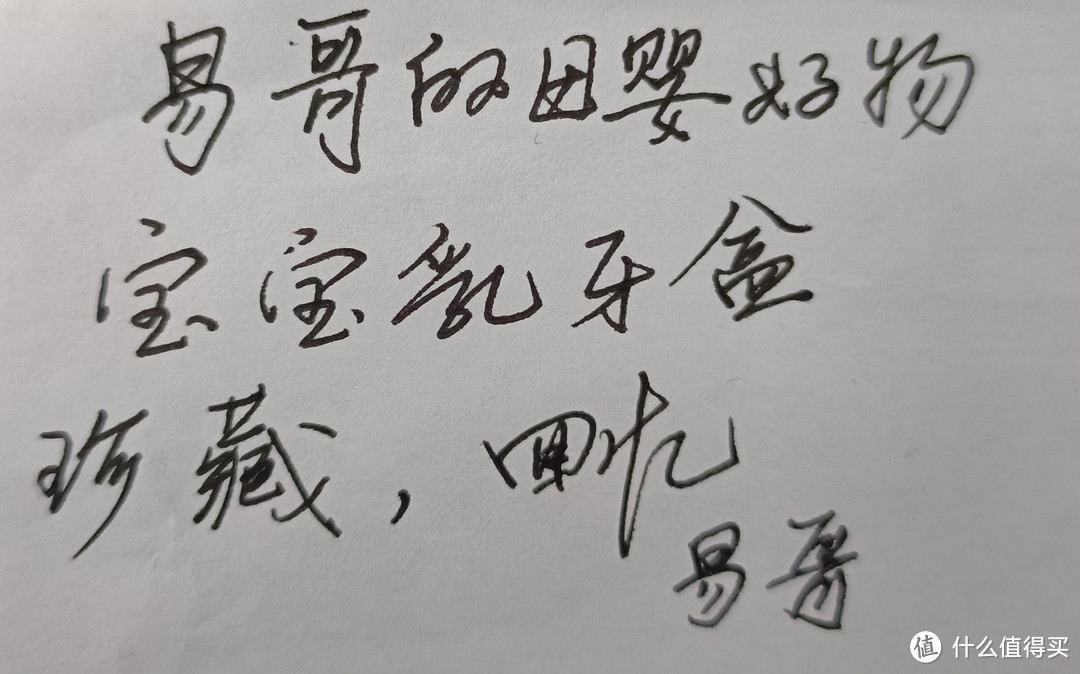 易哥的母婴好物
宝宝乳牙盒
珍藏，回忆
易哥
值 什么值得买